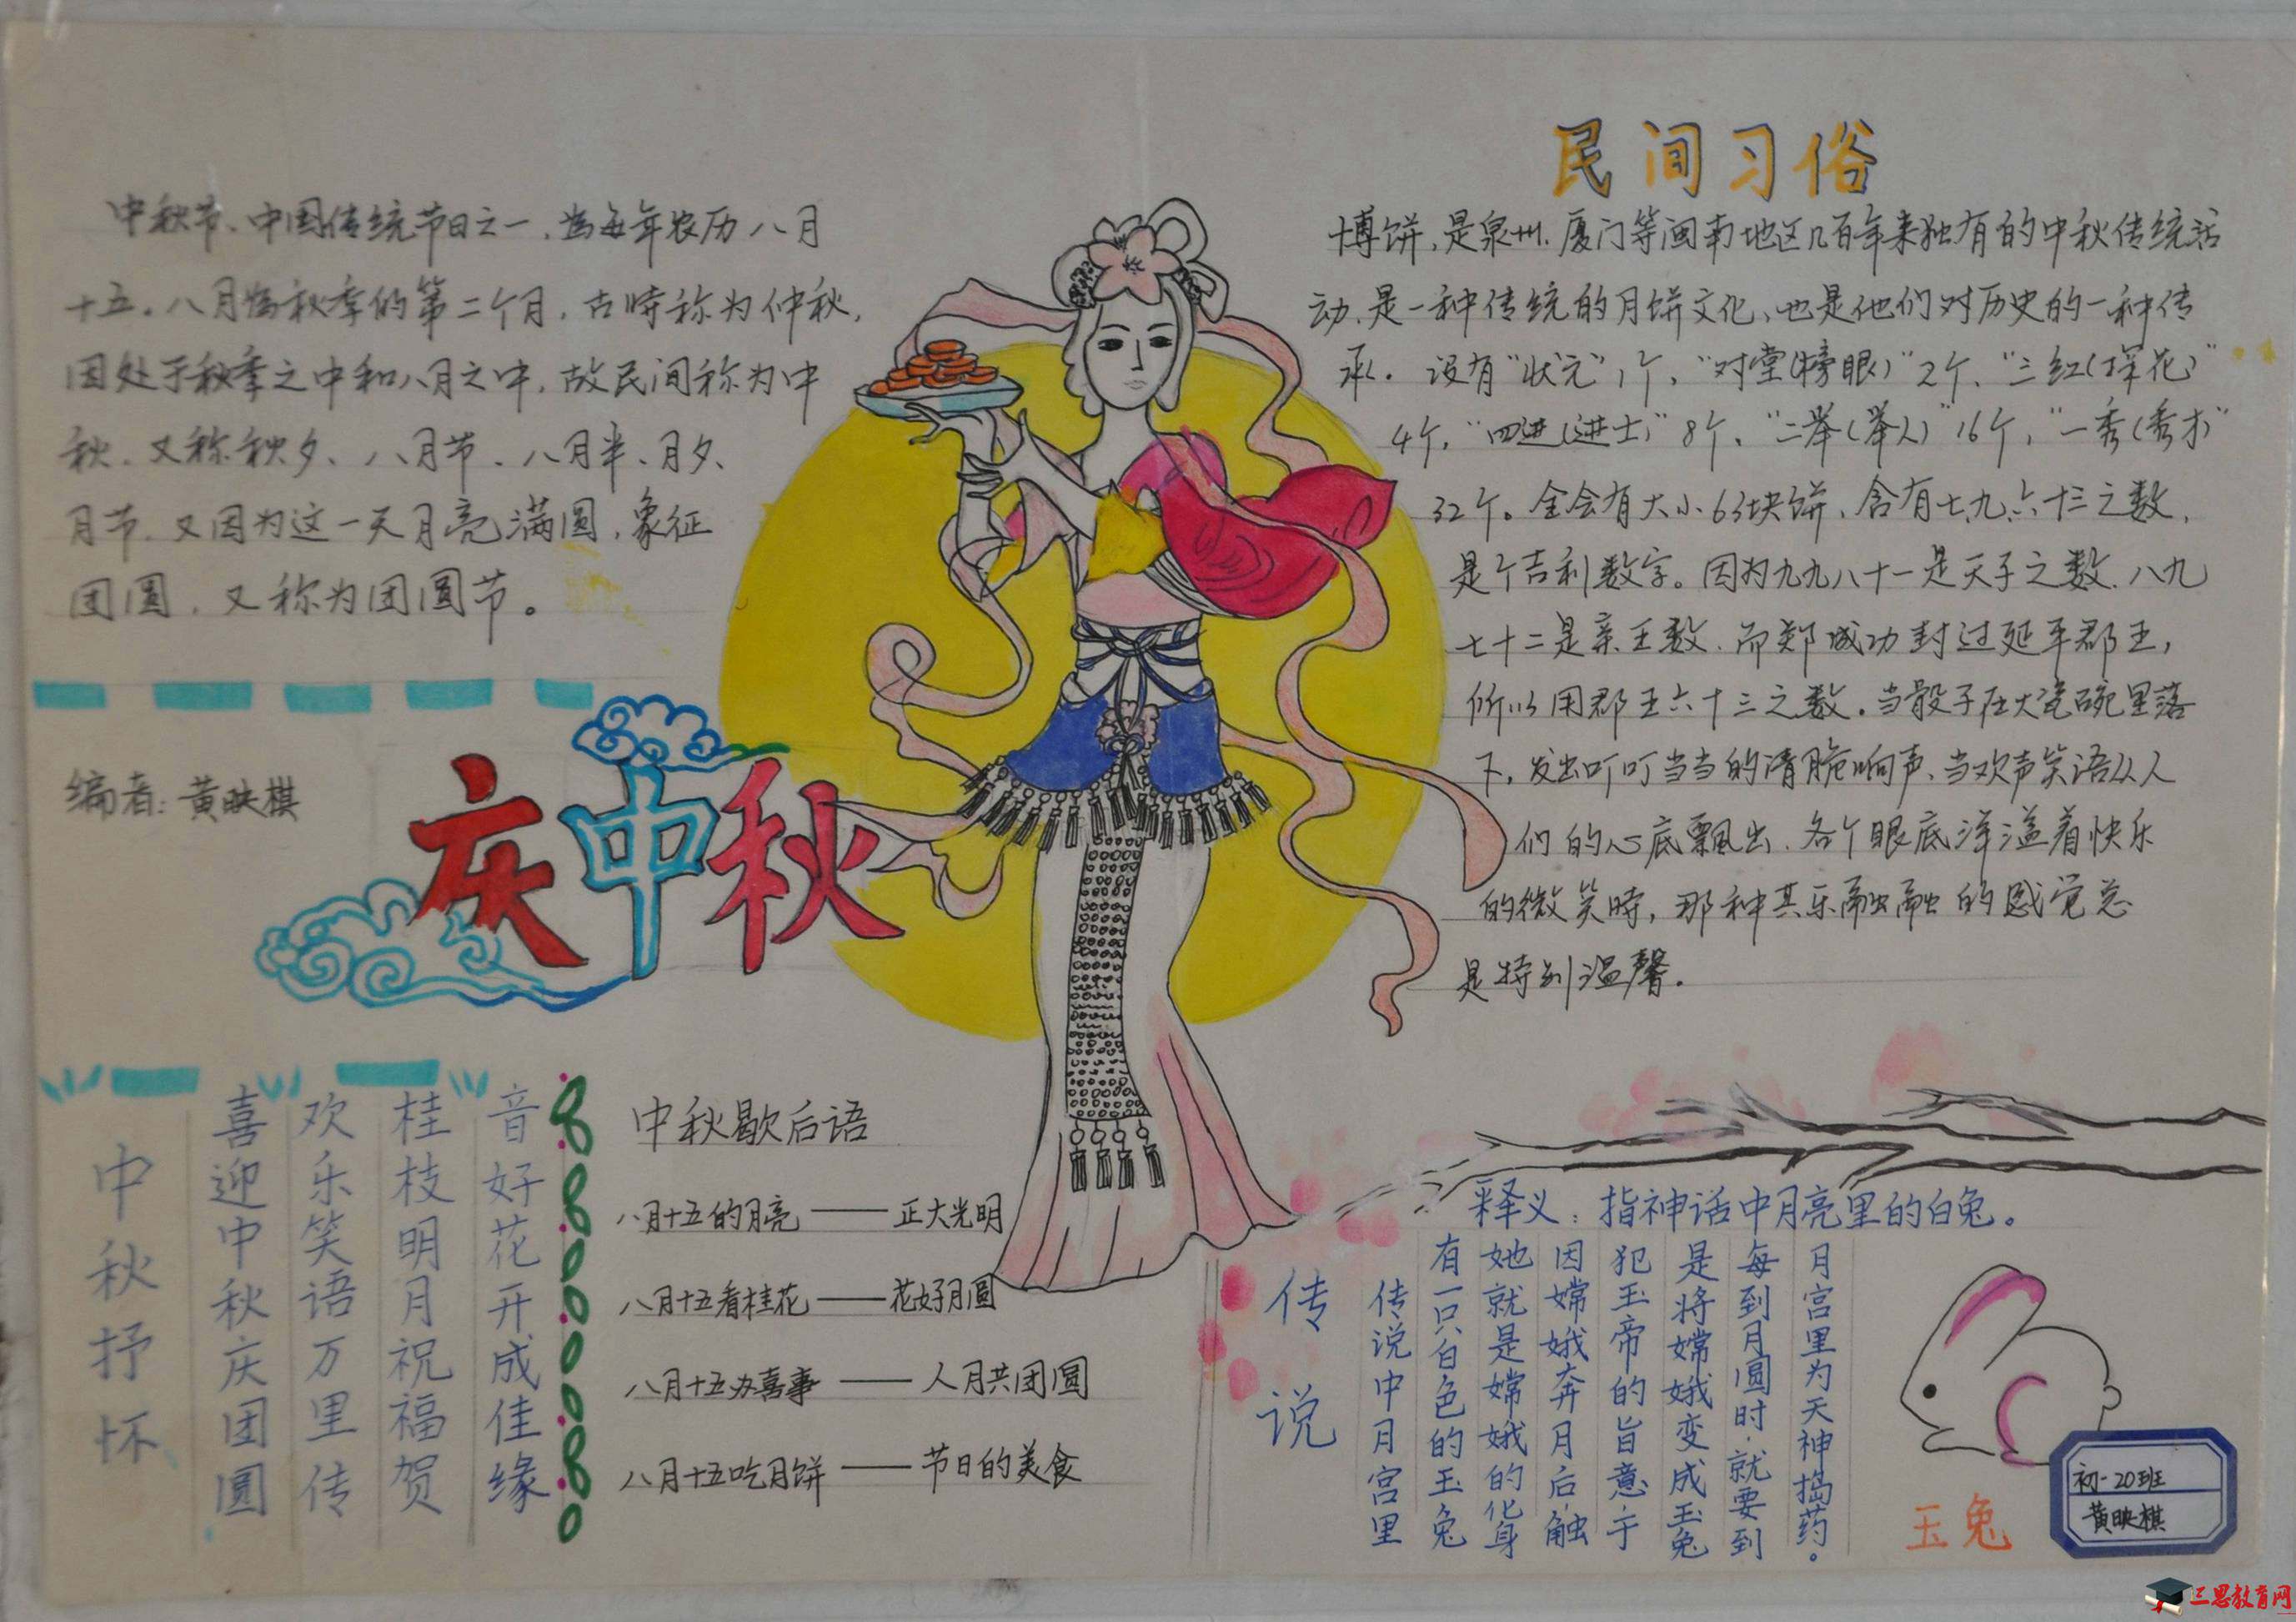 中秋节、中国传统节日之一、为每年农历八月
十五。八月为秋季的第二个月，古時称为仲秋，
因处于秋季之中和八月之中，故民间称为中
秋、又称秋夕、八月节、八月半、月夕、
月节，又因为这一天月亮满圆，象征
团圆，又称为团圆节。
编者：黄映棋
庆中秋
民间习俗
博饼，是泉州、厦门等闽南地区几百年来独有的中秋传统活
动、是一种传统的月饼文化、也是他们对历史的一种传
承。设有“状元”1个，“对堂(榜眼)”2个、“三红(探花)”
4个，“四进(进士)”8个、“二举(举人)”16个，“一秀(秀才)”
32个。全会有大小63块饼，含有七、九、六十三之数，
是个吉利数字。因为九九八十一是天子之数、八九
七十二是亲王数、而郑成功封过延平郡王，
所以用郡王六十三之数。当骰子在大瓷碗里落
下，发出叮叮当当的清脆响声、当欢声笑语从人
们的心底飘出、各个眼底洋溢着快乐
的微笑時，那种其乐融融的感觉总
是特别温馨.
中秋抒怀
喜迎中秋庆团圆
欢乐笑语万里传
桂枝明月祝福贺
音好花开成佳缘
中秋歇后语
八月十五的月亮——正大光明
八月十五看桂花——花好月圆
八月十五办喜事——人月共团圆
八月十五吃月饼——节日的美食
释义：指神话中月亮里的白兔。
传说
传说中月宫里
有一只白色的玉兔
她就是嫦娥的化身
因嫦娥奔月后，触
犯玉帝的旨意，于
是将嫦娥变成玉兔
每到月圆时，就要到
月宫里为天神捣药。
玉兔
初一20班
黄映棋
三思教育网